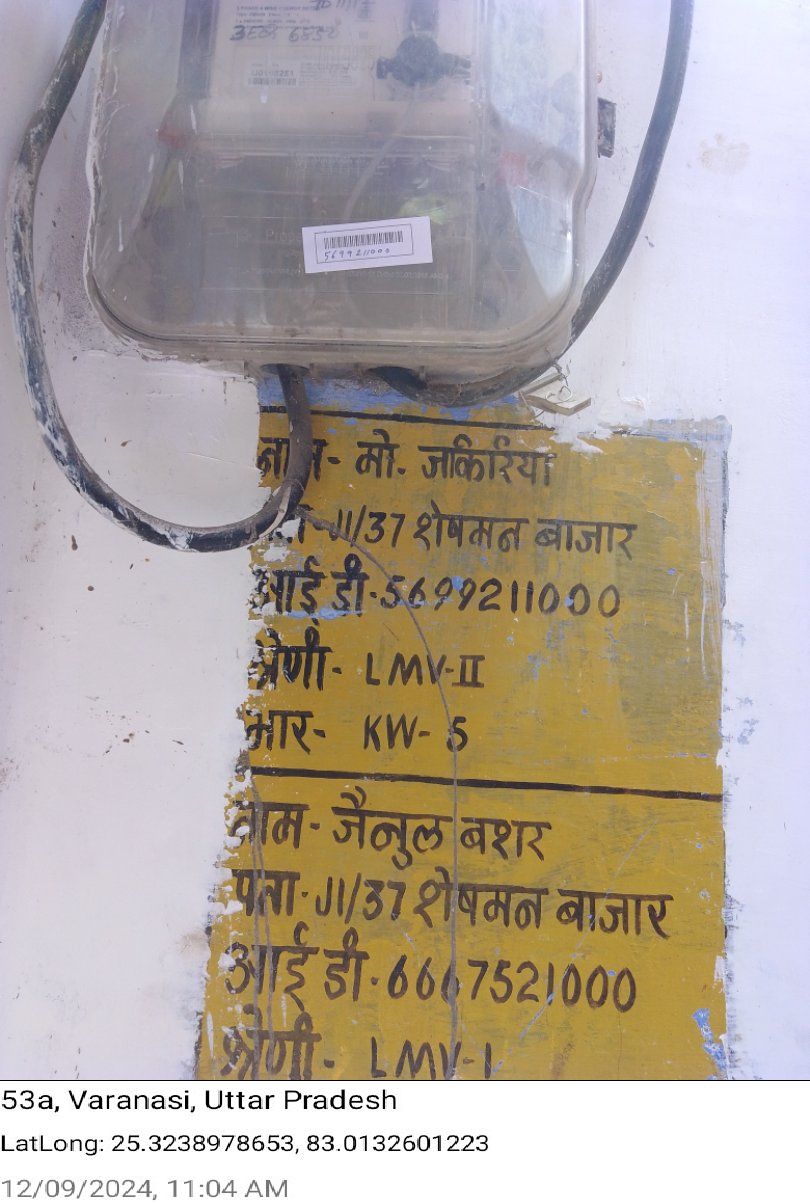 5699211000
नाम- मो. जकिरिया
पता-J1/37 शेषमन बाजार
आई डी.5699211000
श्रेणी- LMV-II
भार- KW- 5
नाम- जैनुल बशर
पता-J1/37 शेषमन बाजार
आई डी.6667521000
श्रेणी- LMV-I
53a, Varanasi, Uttar Pradesh
LatLong: 25.3238978653, 83.0132601223
12/09/2024, 11:04 AM